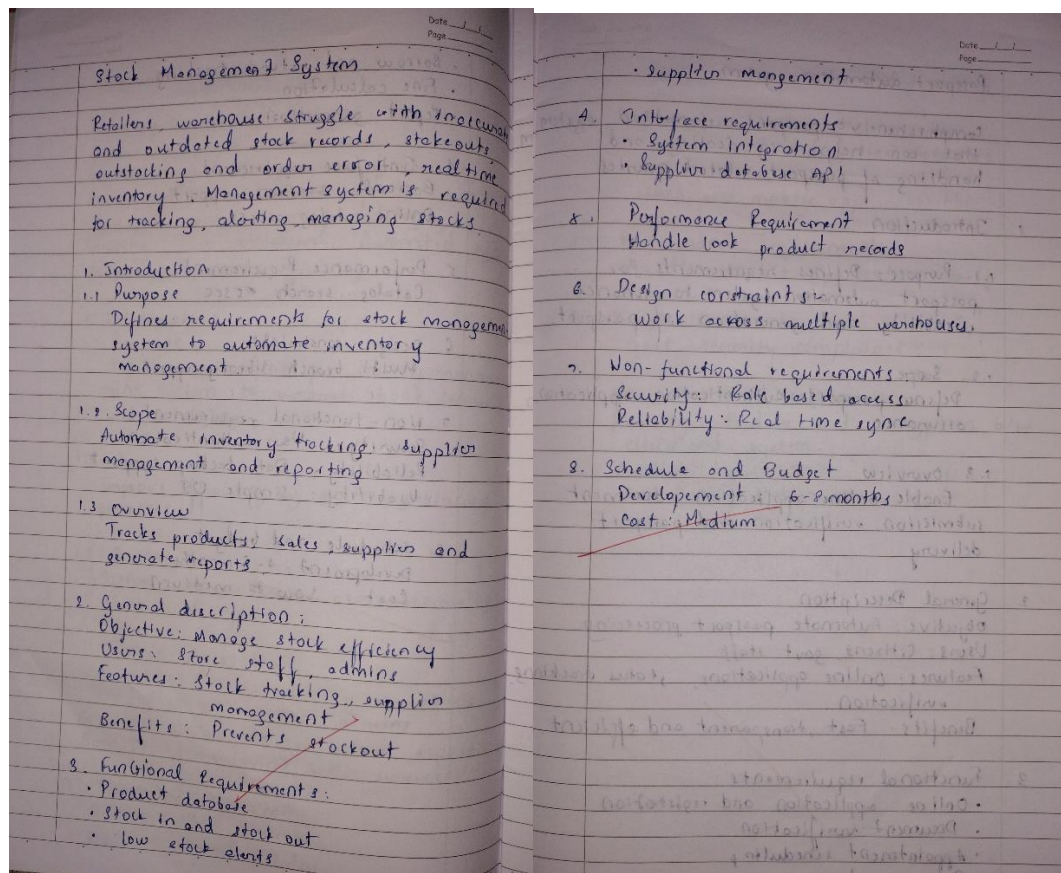 Date
Page
Stock Management System
Retailers, warehouse struggle with inaccurate
and outdated stock records, stokeouts
outstocking and order error, real time
inventory. Management system is required
for tracking, alerting, managing stocks.
1. Introduction
1.1 Purpose
Defines requirements for stock management
system to automate inventory
management
1.2. Scope
Automate inventory tracking, supplier
management and reporting
1.3 Overview
Tracks products, sales, supplier and
generate reports
2. General discription:
Objective: Manage stock efficiency
Users: Store staff, admins
Features: Stock tracking, supplier
management
Benefits: Prevents stockout
3. Functional Requirements:
• Product database
• Stock in and stock out
• low stock alerts
Date
Page
• supplier mangement
4. Interface requirements
• System Integration
• Supplier database API
Performance Requirement
Handle look product records
6. Design constraints
Work across multiple warehouses.
7. Non-functional requirements
Security: Role based access
Reliability: Real time sync
8. Schedule and Budget
Developement: 6-8 months
Cost: Medium